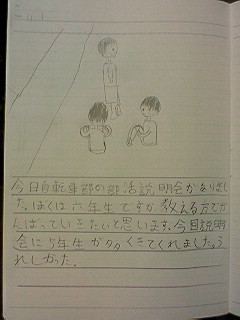 今日自転車部の部活説明会がありまし
た。ぼくは六年生ですが、教える方でが
んばっていきたいと思います。今回説明
会に5年生がタタくきてくれました。う
れしかった。